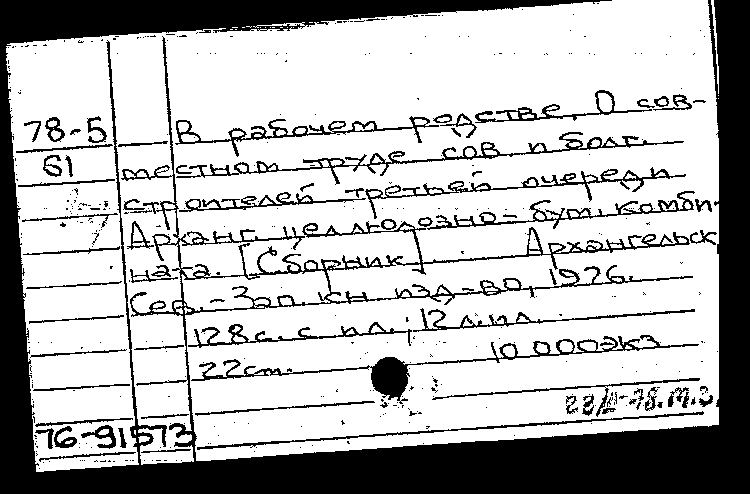 78-5 В рабочем родстве. О сов-
61 местном труде сов. и болг.
строителей третьей очереди
Арханг. целлюлозно-бум. комби-
ната. [Сборник]. Архангельск
Сев.-Зап. кн. изд-во, 1976.
128 с. с ил.; 12 л. ил.
22 cm. 10 000 экз
22/II-78. М.З.
76-91573